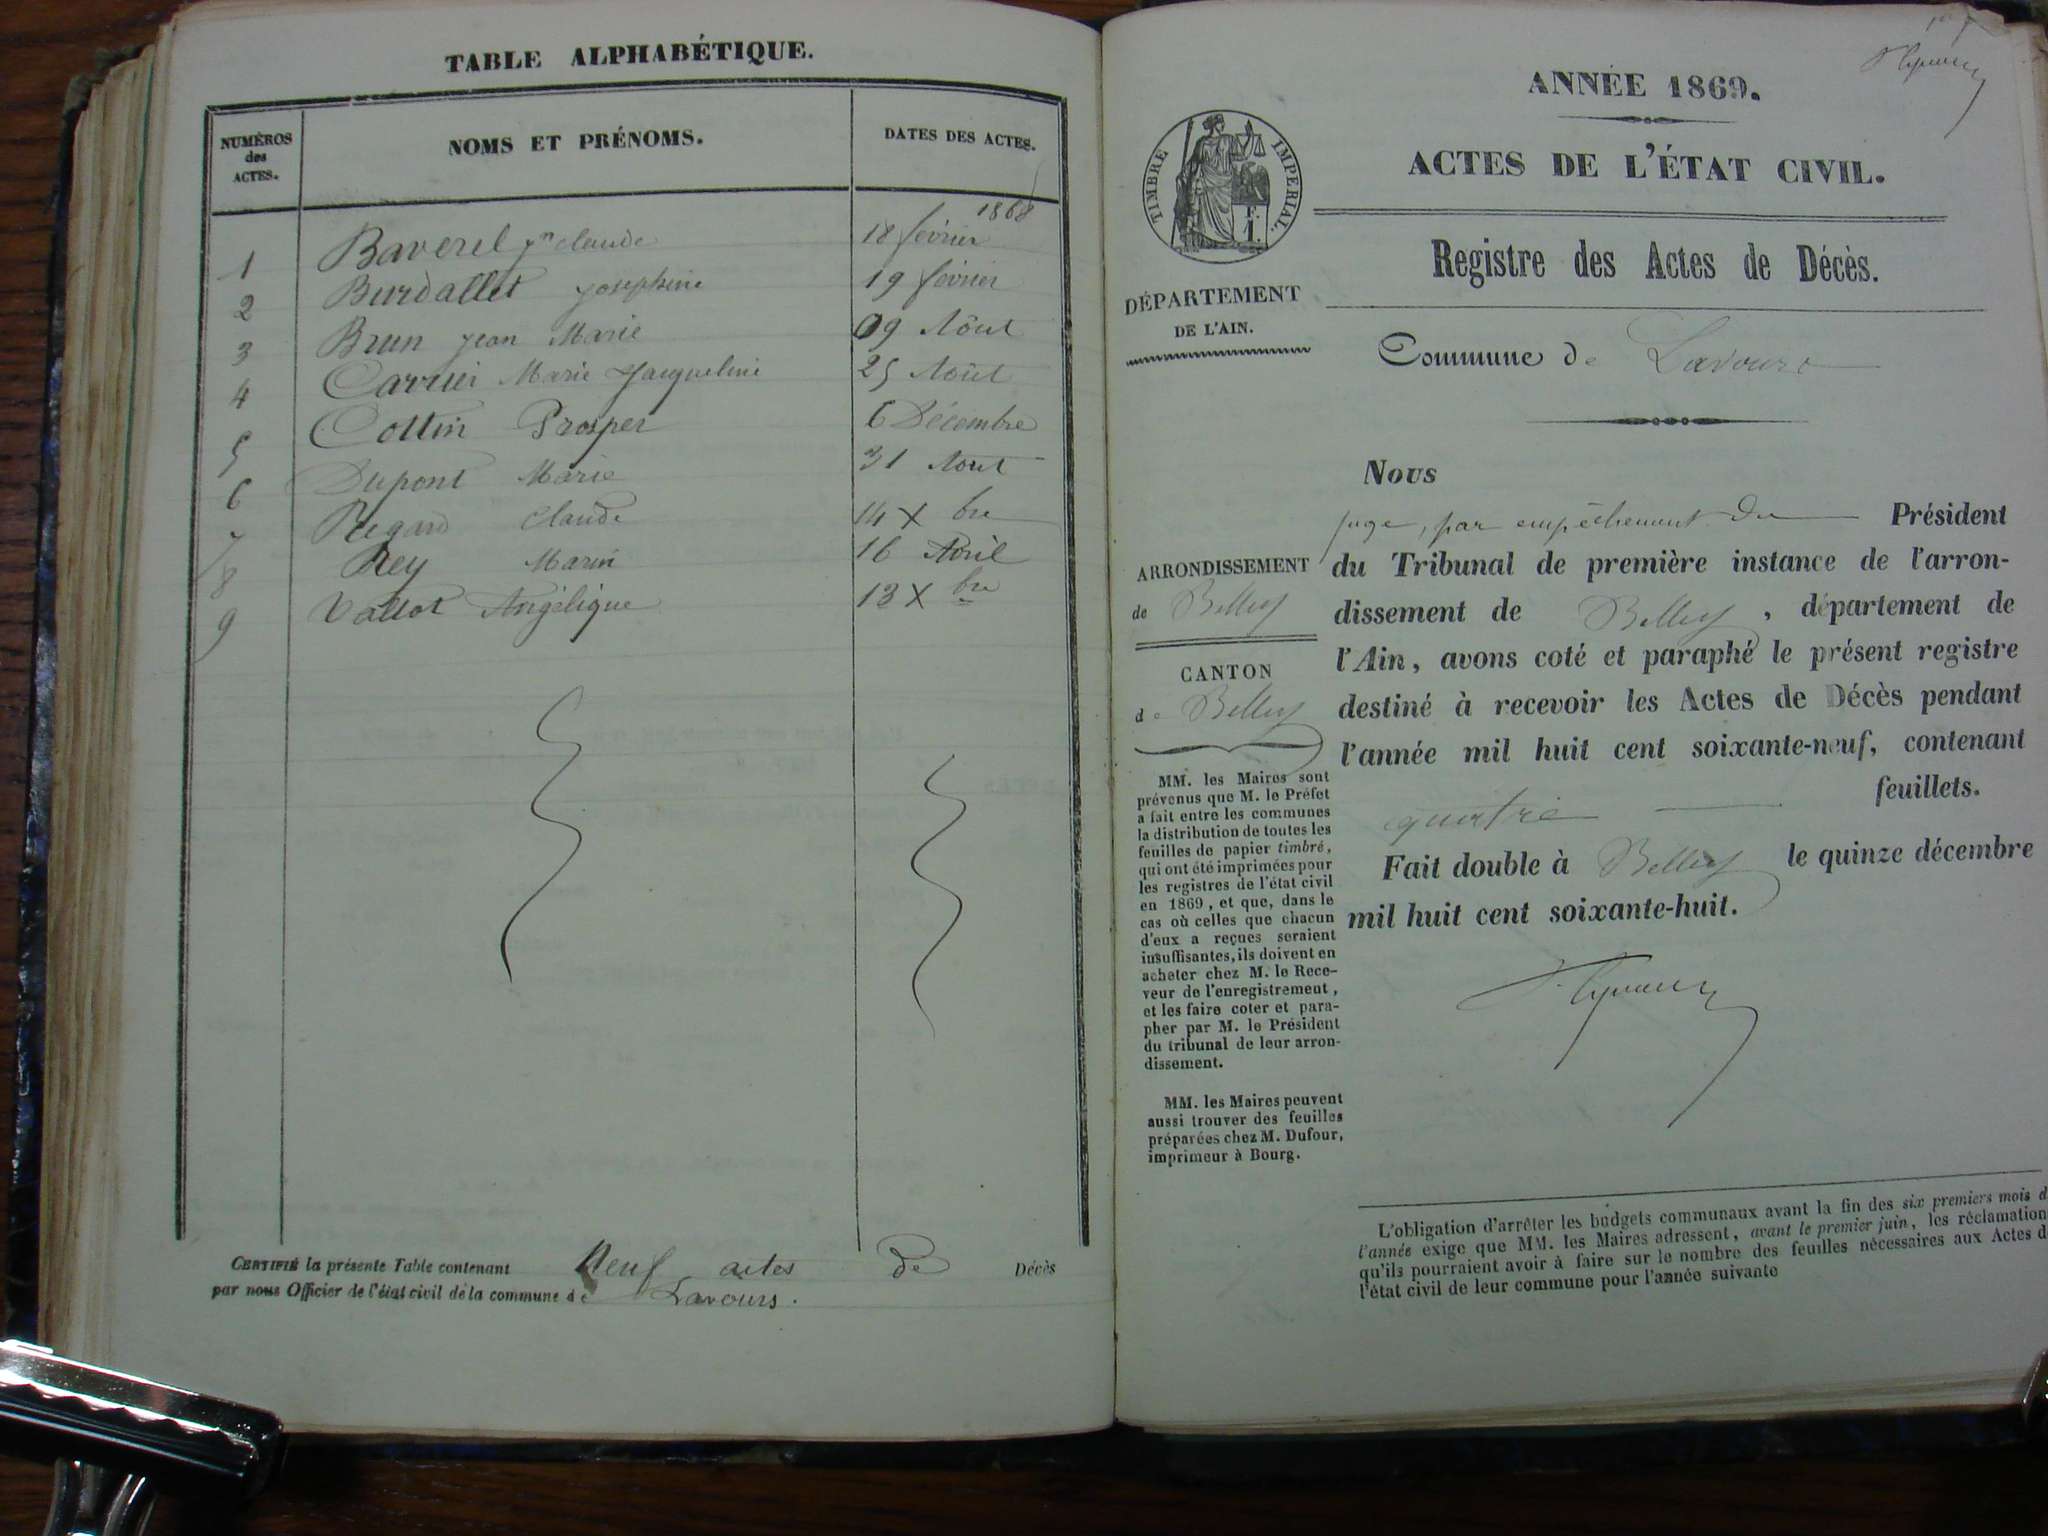 TABLE ALPHABÉTIQUE.
NUMÉROS des ACTES.
NOMS ET PRÉNOMS.
DATES DES ACTES.
1868
1 Baverel Jn claude 18 février
2 Burdallet Josephine 19 février
3 Brun Jean Marie 09 Aôut
4 Carrier Marie Jacqueline 25 Aôut
5 Cottin Prosper 6 Décembre
6 Dupont Marie 31 Aout
7 Regard Claude 14 X bre
8 Rey Marin 16 Avril
9 Vallot Angélique 13 X bre
CERTIFIÉ la présente Table contenant Neuf actes de Décès
par nous Officier de l'état civil de la commune de Lavours.
ANNÉE 1869.
ACTES DE L'ÉTAT CIVIL.
TIMBRE IMPERIAL.
1 F.
Registre des Actes de Décès.
DÉPARTEMENT
DE L'AIN.
Commune de Lavours
ARRONDISSEMENT
de Belley
CANTON
de Belley
MM. les Maires sont
prévenus que M. le Préfet
a fait entre les communes
la distribution de toutes les
feuilles de papier timbré,
qui ont été imprimées pour
les registres de l'état civil
en 1869, et que, dans le
cas où celles que chacun
d'eux a reçues seraient
insuffisantes, ils doivent en
acheter chez M. le Rece-
veur de l'enregistrement,
et les faire coter et para-
pher par M. le Président
du tribunal de leur arron-
dissement.
MM. les Maires peuvent
aussi trouver des feuilles
préparées chez M. Dufour,
imprimeur à Bourg.
NOUS
juge, par empêchement du Président
du Tribunal de première instance de l'arron-
dissement de Belley, département de
l'Ain, avons coté et paraphé le présent registre
destiné à recevoir les Actes de Décès pendant
l'année mil huit cent soixante-neuf, contenant
quatre feuillets.
Fait double à Belley le quinze décembre
mil huit cent soixante-huit.
L'obligation d'arrêter les budgets communaux avant la fin des six premiers mois d
l'année exige que MM. les Maires adressent, avant le premier juin, les réclamation
qu'ils pourraient avoir à faire sur le nombre des feuilles nécessaires aux Actes d
l'état civil de leur commune pour l'année suivante